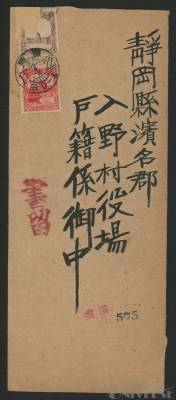 靜岡縣濱名郡
入野村役場
戸籍係御中
書留
575